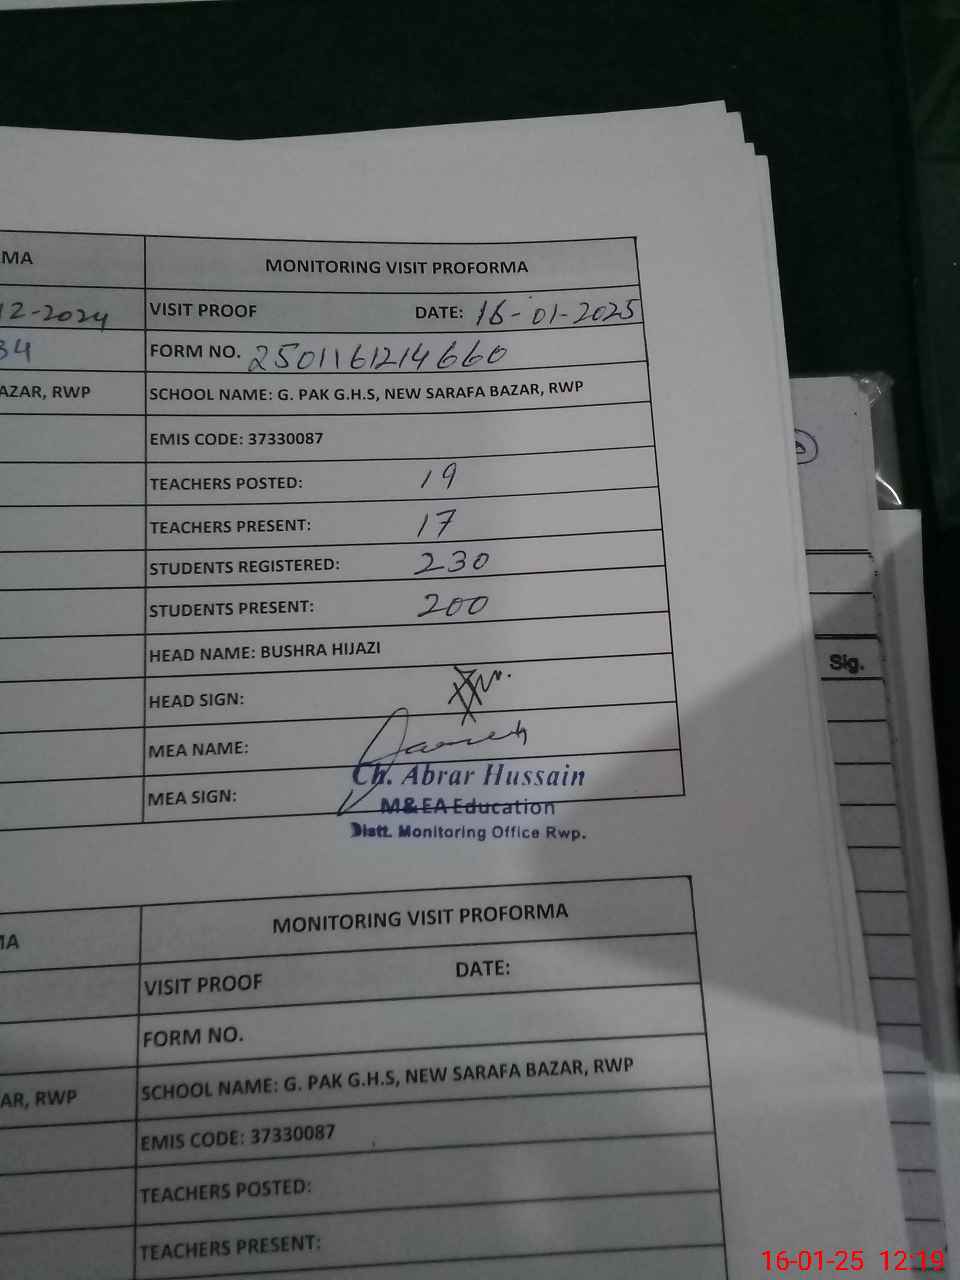 MA
MONITORING VISIT PROFORMA
12-2024
VISIT PROOF DATE: 16-01-2025
34
FORM NO. 2501161214660
AZAR, RWP
SCHOOL NAME: G. PAK G.H.S, NEW SARAFA BAZAR, RWP
EMIS CODE: 37330087
TEACHERS POSTED: 19
TEACHERS PRESENT: 17
STUDENTS REGISTERED: 230
STUDENTS PRESENT: 200
HEAD NAME: BUSHRA HIJAZI
HEAD SIGN:
MEA NAME:
Ch. Abrar Hussain
MEA SIGN:
M&EA Education
Distt. Monitoring Office Rwp.
Sig.
MA
MONITORING VISIT PROFORMA
VISIT PROOF DATE:
FORM NO.
AR, RWP
SCHOOL NAME: G. PAK G.H.S, NEW SARAFA BAZAR, RWP
EMIS CODE: 37330087
TEACHERS POSTED:
TEACHERS PRESENT:
16-01-25 12:19